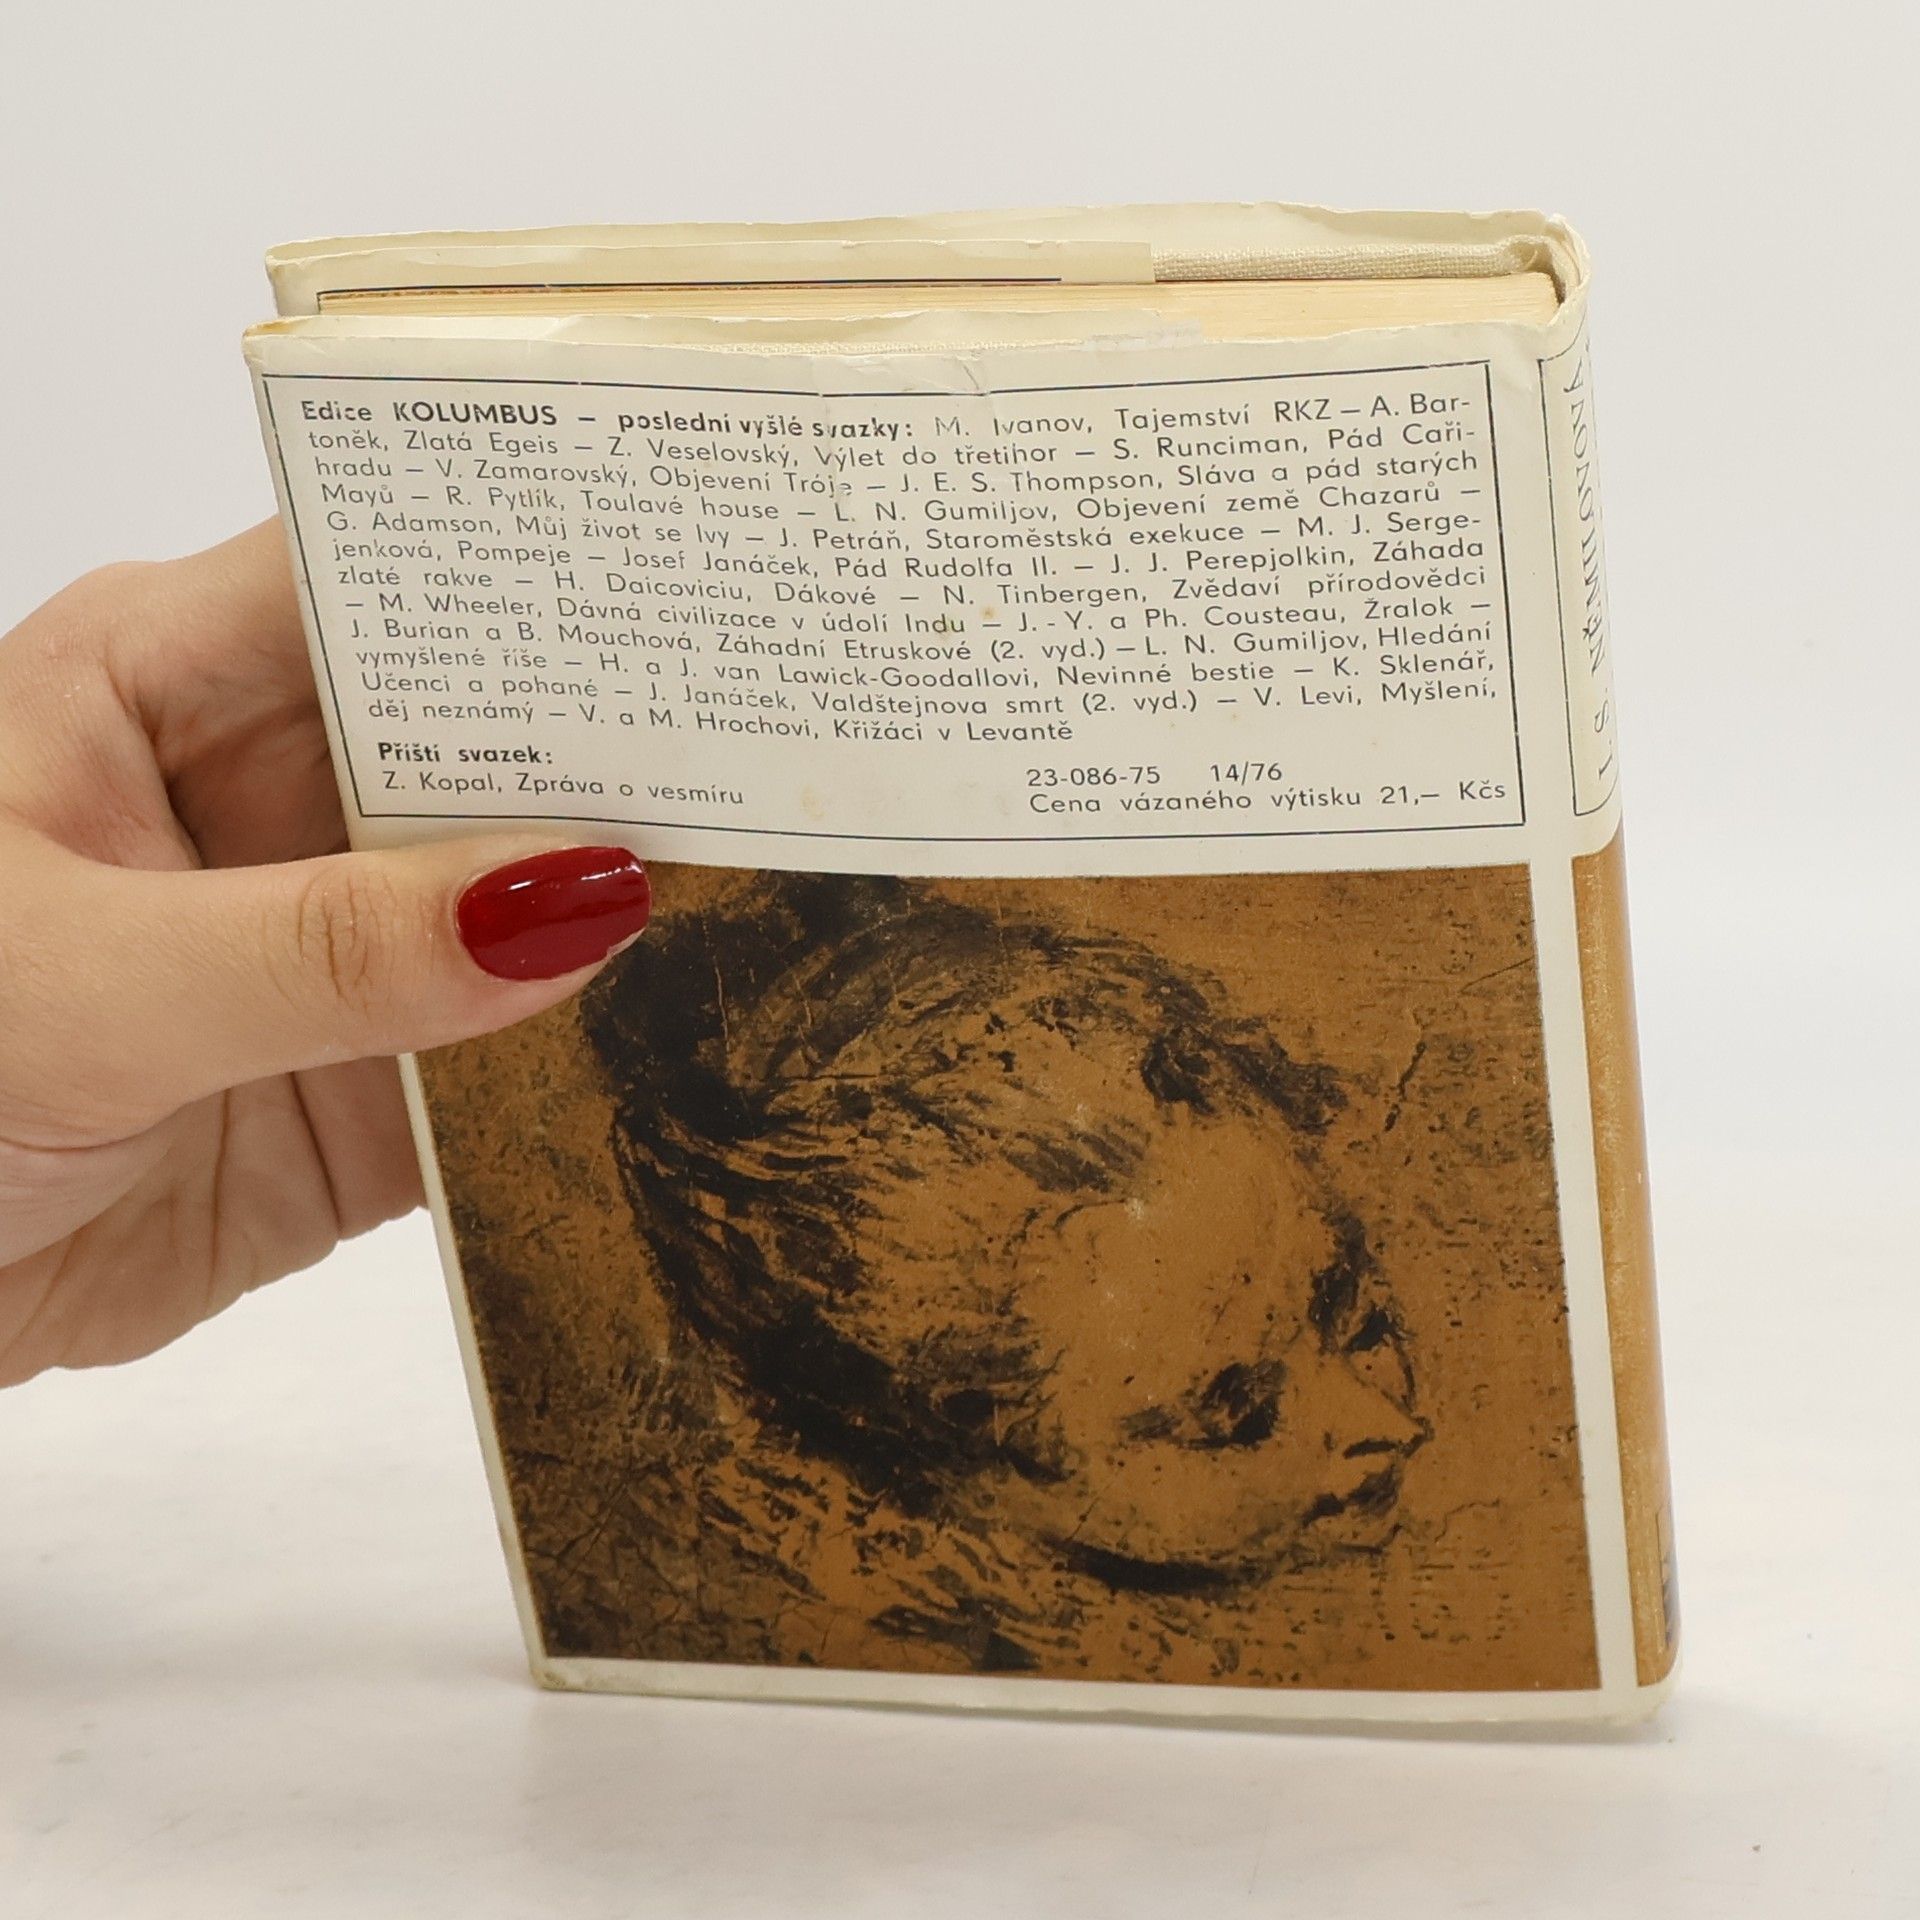 Edice KOLUMBUS – poslední vyšlé svazky: M. Ivanov, Tajemství RKZ – A. Bar-
toněk, Zlatá Egeis – Z. Veselovský, Výlet do třetihor – S. Runciman, Pád Caři-
hradu – V. Zamarovský, Objevení Tróje – J. E. S. Thompson, Sláva a pád starých
Mayů – R. Pytlík, Toulavé house – L. N. Gumiljov, Objevení země Chazarů –
G. Adamson, Můj život se lvy – J. Petráň, Staroměstská exekuce – M. J. Serge-
jenková, Pompeje – Josef Janáček, Pád Rudolfa II. – J. J. Perepjolkin, Záhada
zlaté rakve – H. Daicoviciu, Dákové – N. Tinbergen, Zvědaví přírodovědci
– M. Wheeler, Dávná civilizace v údolí Indu – J.-Y. a Ph. Cousteau, Žralok –
J. Burian a B. Mouchová, Záhadní Etruskové (2. vyd.) – L. N. Gumiljov, Hledání
vymyšlené říše – H. a J. van Lawick-Goodallovi, Nevinné bestie – K. Sklenář,
Učenci a pohané – J. Janáček, Valdštejnova smrt (2. vyd.) – V. Levi, Myšlení,
děj neznámý – V. a M. Hrochovi, Křižáci v Levantě
Příští svazek:
Z. Kopal, Zpráva o vesmíru
23-086-75 14/76
Cena vázaného výtisku 21,– Kčs
I. S. NĚMILOVOVÁ